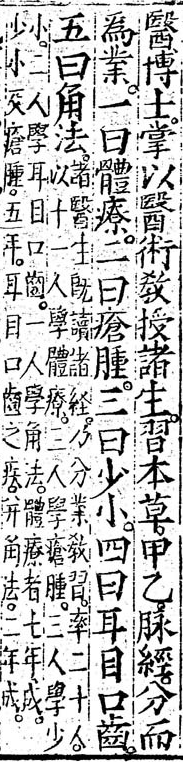 醫博士。掌以醫術敎授諸生。習本草。甲乙。脉經。分而
爲業。一曰體療。二曰瘡腫。三曰少小。四曰耳目口齒。
五曰角法。諸醫生旣讀諸經。乃分業敎習。率二十人。
以十一人學體療。三人學瘡腫。三人學少
小。二人學耳目口齒。一人學角法。體療者七年成。
少小及瘡腫。五年。耳目口齒之疾。并角法。二年成。